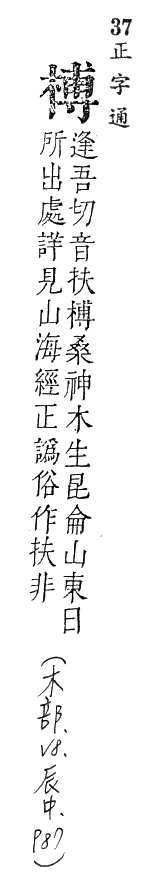 37 正字通
榑
逢吾切音扶榑桑神木生昆侖山東日
所出處詳見山海經正譌俗作扶非
(木部、V8.辰中、P87)